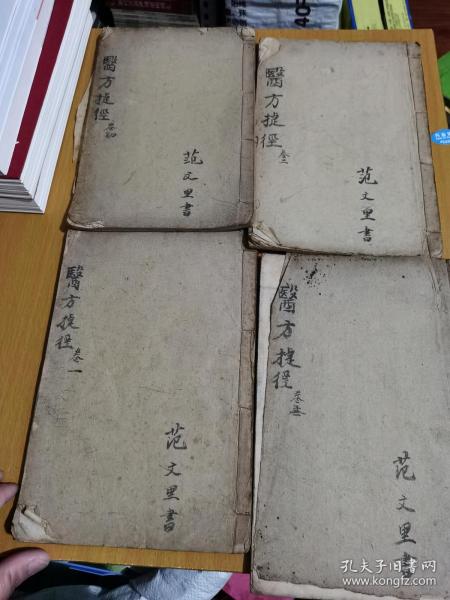 醫方捷徑
范文里書
醫方捷徑 卷二
范文里書
醫方捷徑 卷一
范文里書
醫方捷徑
范文里書
孔夫子旧书网
www.kongfz.com